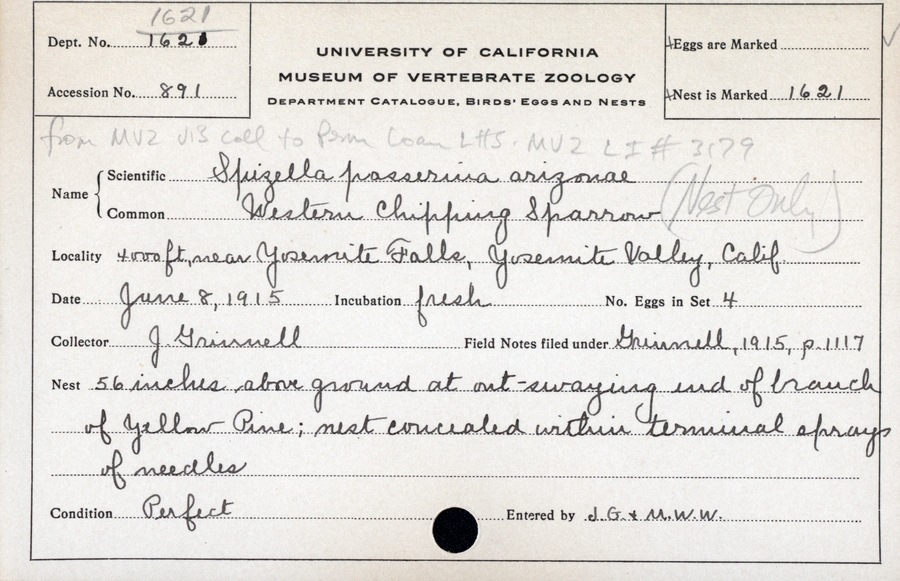 1621
Dept. No. 1621
Accession No. 891
UNIVERSITY OF CALIFORNIA
MUSEUM OF VERTEBRATE ZOOLOGY
DEPARTMENT CATALOGUE, BIRDS' EGGS AND NESTS
Eggs are Marked
Nest is Marked 1621
from MVZ coll to Perm Loan LHS. MVZ LI# 3179
Name { Scientific Spizella passerina arizonae
Common Western Chipping Sparrow (Nest Only)
Locality 4000 ft, near Yosemite Falls, Yosemite Valley, Calif.
Date June 8, 1915 Incubation fresh No. Eggs in Set 4
Collector J. Grinnell Field Notes filed under Grinnell, 1915, p. 1117
Nest 56 inches above ground at out-swaying end of branch
of Yellow Pine; nest concealed within terminal sprays
of needles
Condition Perfect Entered by J.G. & M.W.W.